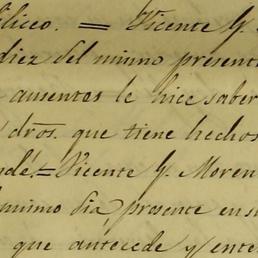 liceo. = Vicente G.
diez del mismo present
ausentos le hice saber
dros. que tiene hechos
dé. = Vicente G. Moren
mismo dia presente en su
que antecede y ente